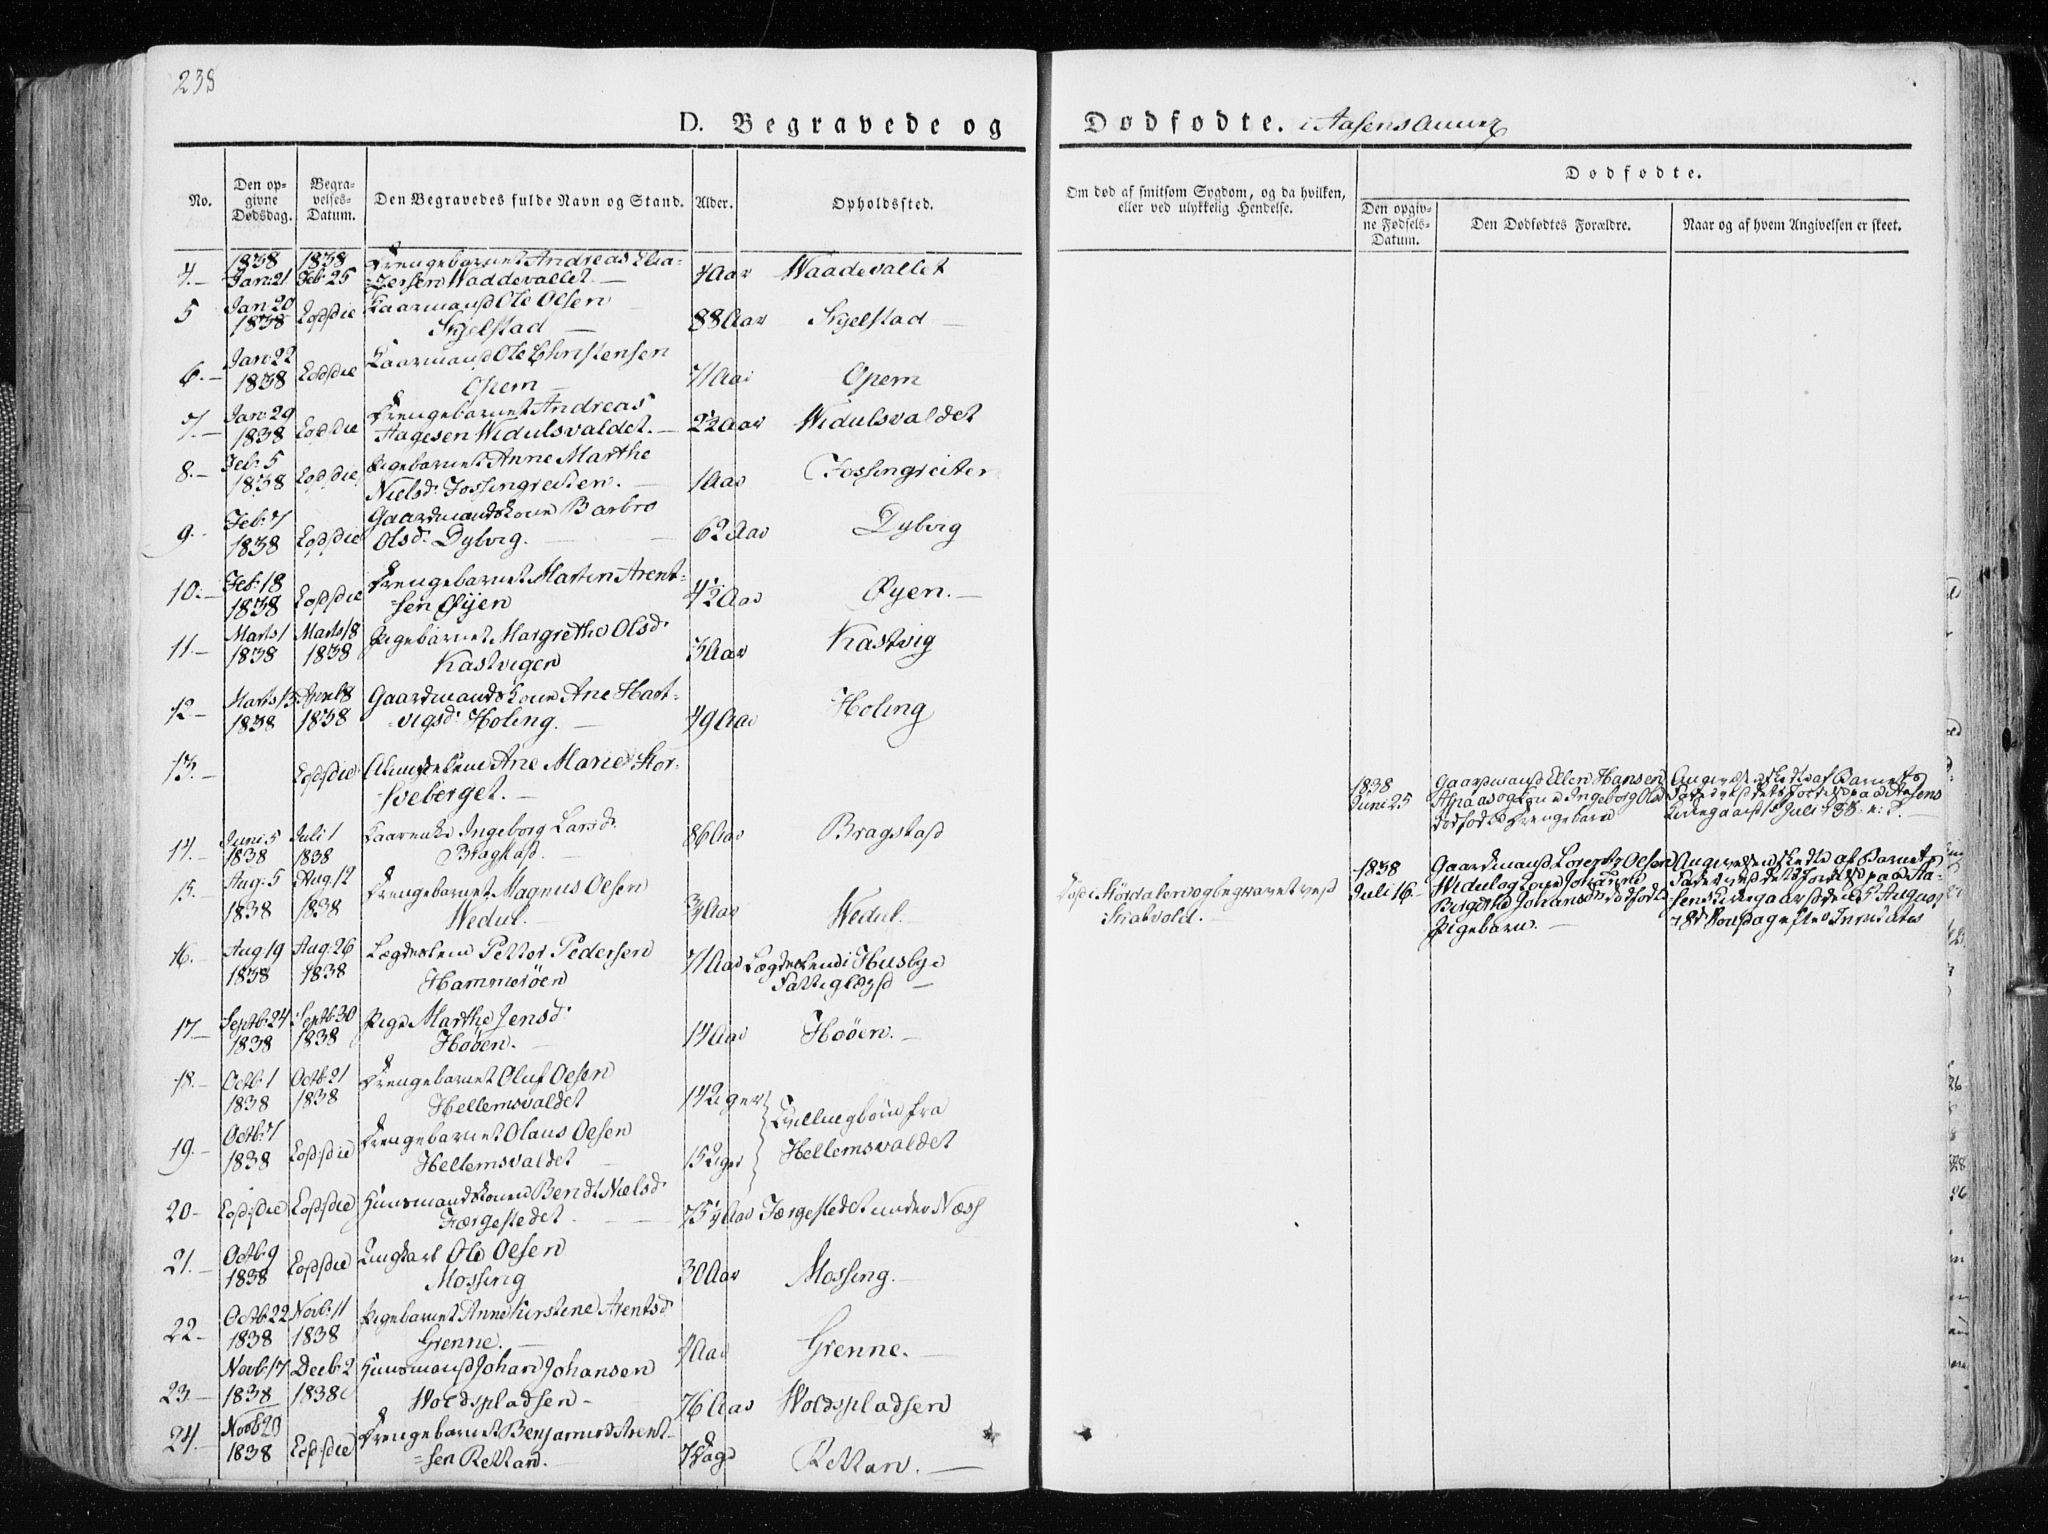 238
D. Begravede og Dødfødte. i Aasens Annex
No.
Den opgivne Dødsdag.
Begravelses-Datum.
Den Begravedes fulde Navn og Stand.
Alder.
Opholdssted.
Om død af smitsom Sygdom, og da hvilken, eller ved ulykkelig Hendelse.
Dødfødte.
Den opgivne Fødsels-Datum.
Den Dødfødtes Forældre.
Naar og af hvem Angivelsen er skeet.
4.- 1838 Jan: 21 1838 Feb: 25 Drengebarnet Andreas Elia-
=sersen Waddevallet.- 4 Aar Waadevallet
5 Jan: 20 1838 Eodsdie Kaarmand Ole Olsen
Skjelstad - 88 Aar Skjelstad -
6.- Jan: 22 1838 Eodsdie Kaarmand Ole Christensen
Opem - 71 Aar Opem
7.- Jan: 29 1838 Eodsdie Drengebarnet Andreas
Aagesen Widulsvaldet.- 2½ Aar Widulsvaldet
8.- Feb: 5 1838 Eodsdie Pigebarnet Anne Marthe
Nielsd: Fossingreiten.- 1 Aar Fossingreiter
9.- Feb: 7 1838 Eodsdie Gaardmandskone Barbro
Olsd: Dybvig.- 62 Aar Dybvig
10.- Feb: 18 1838 Eodsdie Drengebarnet Martin Arent-
=sen Øyen 4½ Aar Øyen.-
11.- Marts 1 1838 Marts 18 1838 Pigebarnet Margrethe Olsd:
Kastvigen 3 Aar Kastvig
12.- Marts 13 1838 April 8 1838 Gaardmandskone Ane Hart-
=vigsd: Holing.- 49 Aar Holing
13.- Eodsdie Ane Marie Stor-
sveberget.-
1838 Juni 25 Gaardmand Ellen Hansen
og Kone Ingeborg Olsd:
dødfødte Drengebarn
Angivelsen skedte af Barnets
Fader ved dets Jordf: paa Aasens
Kirkegaard 1 Juli 1838
14.- Juni: 5 1838 Juli 1 1838 Kaarenke Ingeborg Larsd:
Bragstad.- 86 Aar Bragstad
15.- Aug: 5 1838 Aug: 12 1838 Drengebarnet Magnus Olsen
Wedul.- 3/4 Aar Wedul.-
Død i Størdalen og begravet ved
Skatvold.-
1838 Juli 16.- Gaardmand Lorentz Olsen
Widul og Kone Johanne
Birgithe Johansd: dødfødte
Pigebarn.-
Angivelsen skedte af Barnets
Fader ved dets Jordf: paa Aa-
sens Kirkegaard den 5 August
16.- Aug: 19 1838 Aug: 26 1838 Lægdeslem Petter Pedersen
Hammerøen 71 Aar Lægdeslem i Husbye
Fattiglægd -
17.- Septb: 24 1838 Septb: 30 1838 Pige Marthe Jensd:
Høøen.- 14 Aar Høøen.-
18.- Octb: 1 1838 Octb: 21 1838 Drengebarnet Oluf Olsen
Hellemsvaldet 14 Uger
Tvillingbørn fra
Hellemsvaldet
19.- Octb: 7 1838 Eodsdie Drengebarnet Olaus Olsen
Hellemsvaldet 15 Uger
20.- Eodsdie Eodsdie Huusmandskone Bendt Nielsd:
Færgestedet. 75¼ Aar Færgestedet under Næss
21.- Octb: 9 1838 Eodsdie Ungkarl Ole Olsen
Mossing 30 Aar Mossing.-
22.- Octb: 22 1838 Novb: 11 1838 Pigebarnet Anne Kirstine Arentsd:
Grenne.- 4 Aar Grenne.-
23.- Novb: 17 1838 Decb: 2 1838 Huusmand Johan Johansen
Woldspladsen - 76 Aar Woldspladsen
24.- Novb: 20 1838 Eodsdie Drengebarnet Benjamin Arent-
=sen Rettan.- 7 Dage Rettan.-